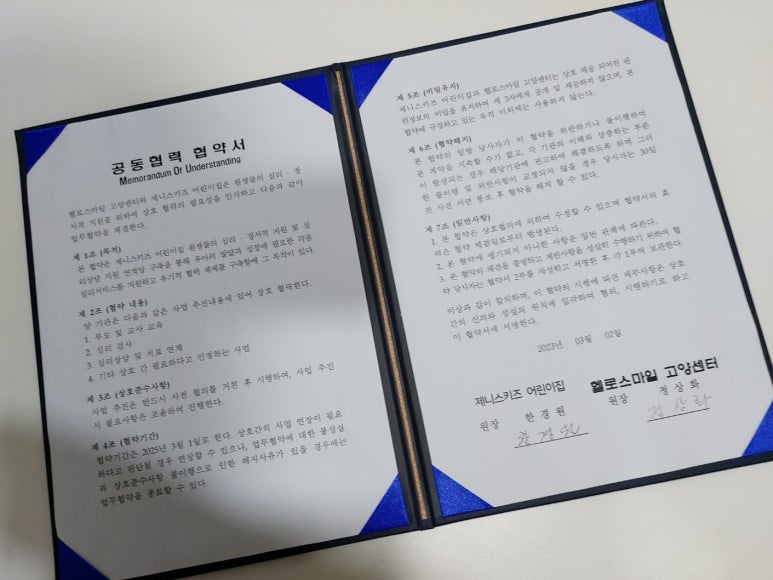 공동협력 협약서
Memorandum Of Understanding
헬로스마일 고양센터와 제니스키즈 어린이집은 원생들의 심리 · 정
서적 지원을 위하여 상호 협력의 필요성을 인식하고 다음과 같이
업무협약을 체결한다.
제 1조 (목적)
본 협약은 제니스키즈 어린이집 원생들의 심리 · 정서적 지원 및 심
리상담 지원 연계망 구축을 통해 유아의 발달과 성장에 필요한 각종
심리서비스를 지원하고 유기적 협력 체제를 구축함에 그 목적이 있다.
제 2조 (협약 내용)
양 기관은 다음과 같은 사업 추진내용에 있어 상호 협력한다.
1. 부모 및 교사 교육
2. 심리 검사
3. 심리상담 및 치료 연계
4. 기타 상호 간 필요하다고 인정하는 사업
제 3조 (상호준수사항)
사업 추진은 반드시 사전 협의를 거친 후 시행하며, 사업 추진
시 필요사항은 조율하여 진행한다.
제 4조 (협약기간)
협약기간은 2025년 3월 1일로 한다. 상호간의 사업 연장이 필요
하다고 판단될 경우 연장할 수 있으나, 업무협약에 대한 불성실
과 상호준수사항 불이행으로 인한 해지사유가 있을 경우에는
업무협약을 종료할 수 있다.
제 5조 (비밀유지)
제니스키즈 어린이집과 헬로스마일 고양센터는 상호 제공 되어진 관
련정보의 비밀을 유지하여 제 3자에게 공개 및 제공하지 않으며, 본
협약에 규정하고 있는 목적 이외에는 사용하지 않는다.
제 6조 (협약해지)
본 협약의 일방 당사자가 이 협약을 위반하거나 불이행하여
본 계약을 지속할 수가 없고, 각 기관의 이해와 상충하는 부분
이 발생되는 경우 해당기관에 권고하여 해결하도록 하며 그러
한 불이행 및 위반사항이 교정되지 않을 경우 당사자는 30일
전 사전 서면 통보 후 협약을 해지 할 수 있다.
제 7조 (일반사항)
1. 본 협약은 상호협의에 의하여 수정할 수 있으며 협약서의 효
력은 협약 체결일로부터 발생된다.
2. 본 협약에 명기되지 아니한 사항은 일반 관례에 따른다.
3. 본 협약의 체결을 증명하고 제반사항을 성실히 수행하기 위하여 협
약 당사자는 협약서 2부를 작성하고 서명한 후 각 1부씩 보관한다.
이상과 같이 합의하며, 이 협약의 시행에 따른 세부사항은 상호
간의 신의와 성실의 원칙에 입각하여 협의, 시행하기로 하고
이 협약서에 서명한다.
2023년 03월 02일
제니스키즈 어린이집 헬로스마일 고양센터
원장 한경원 원장 정상화
한경원 정상화